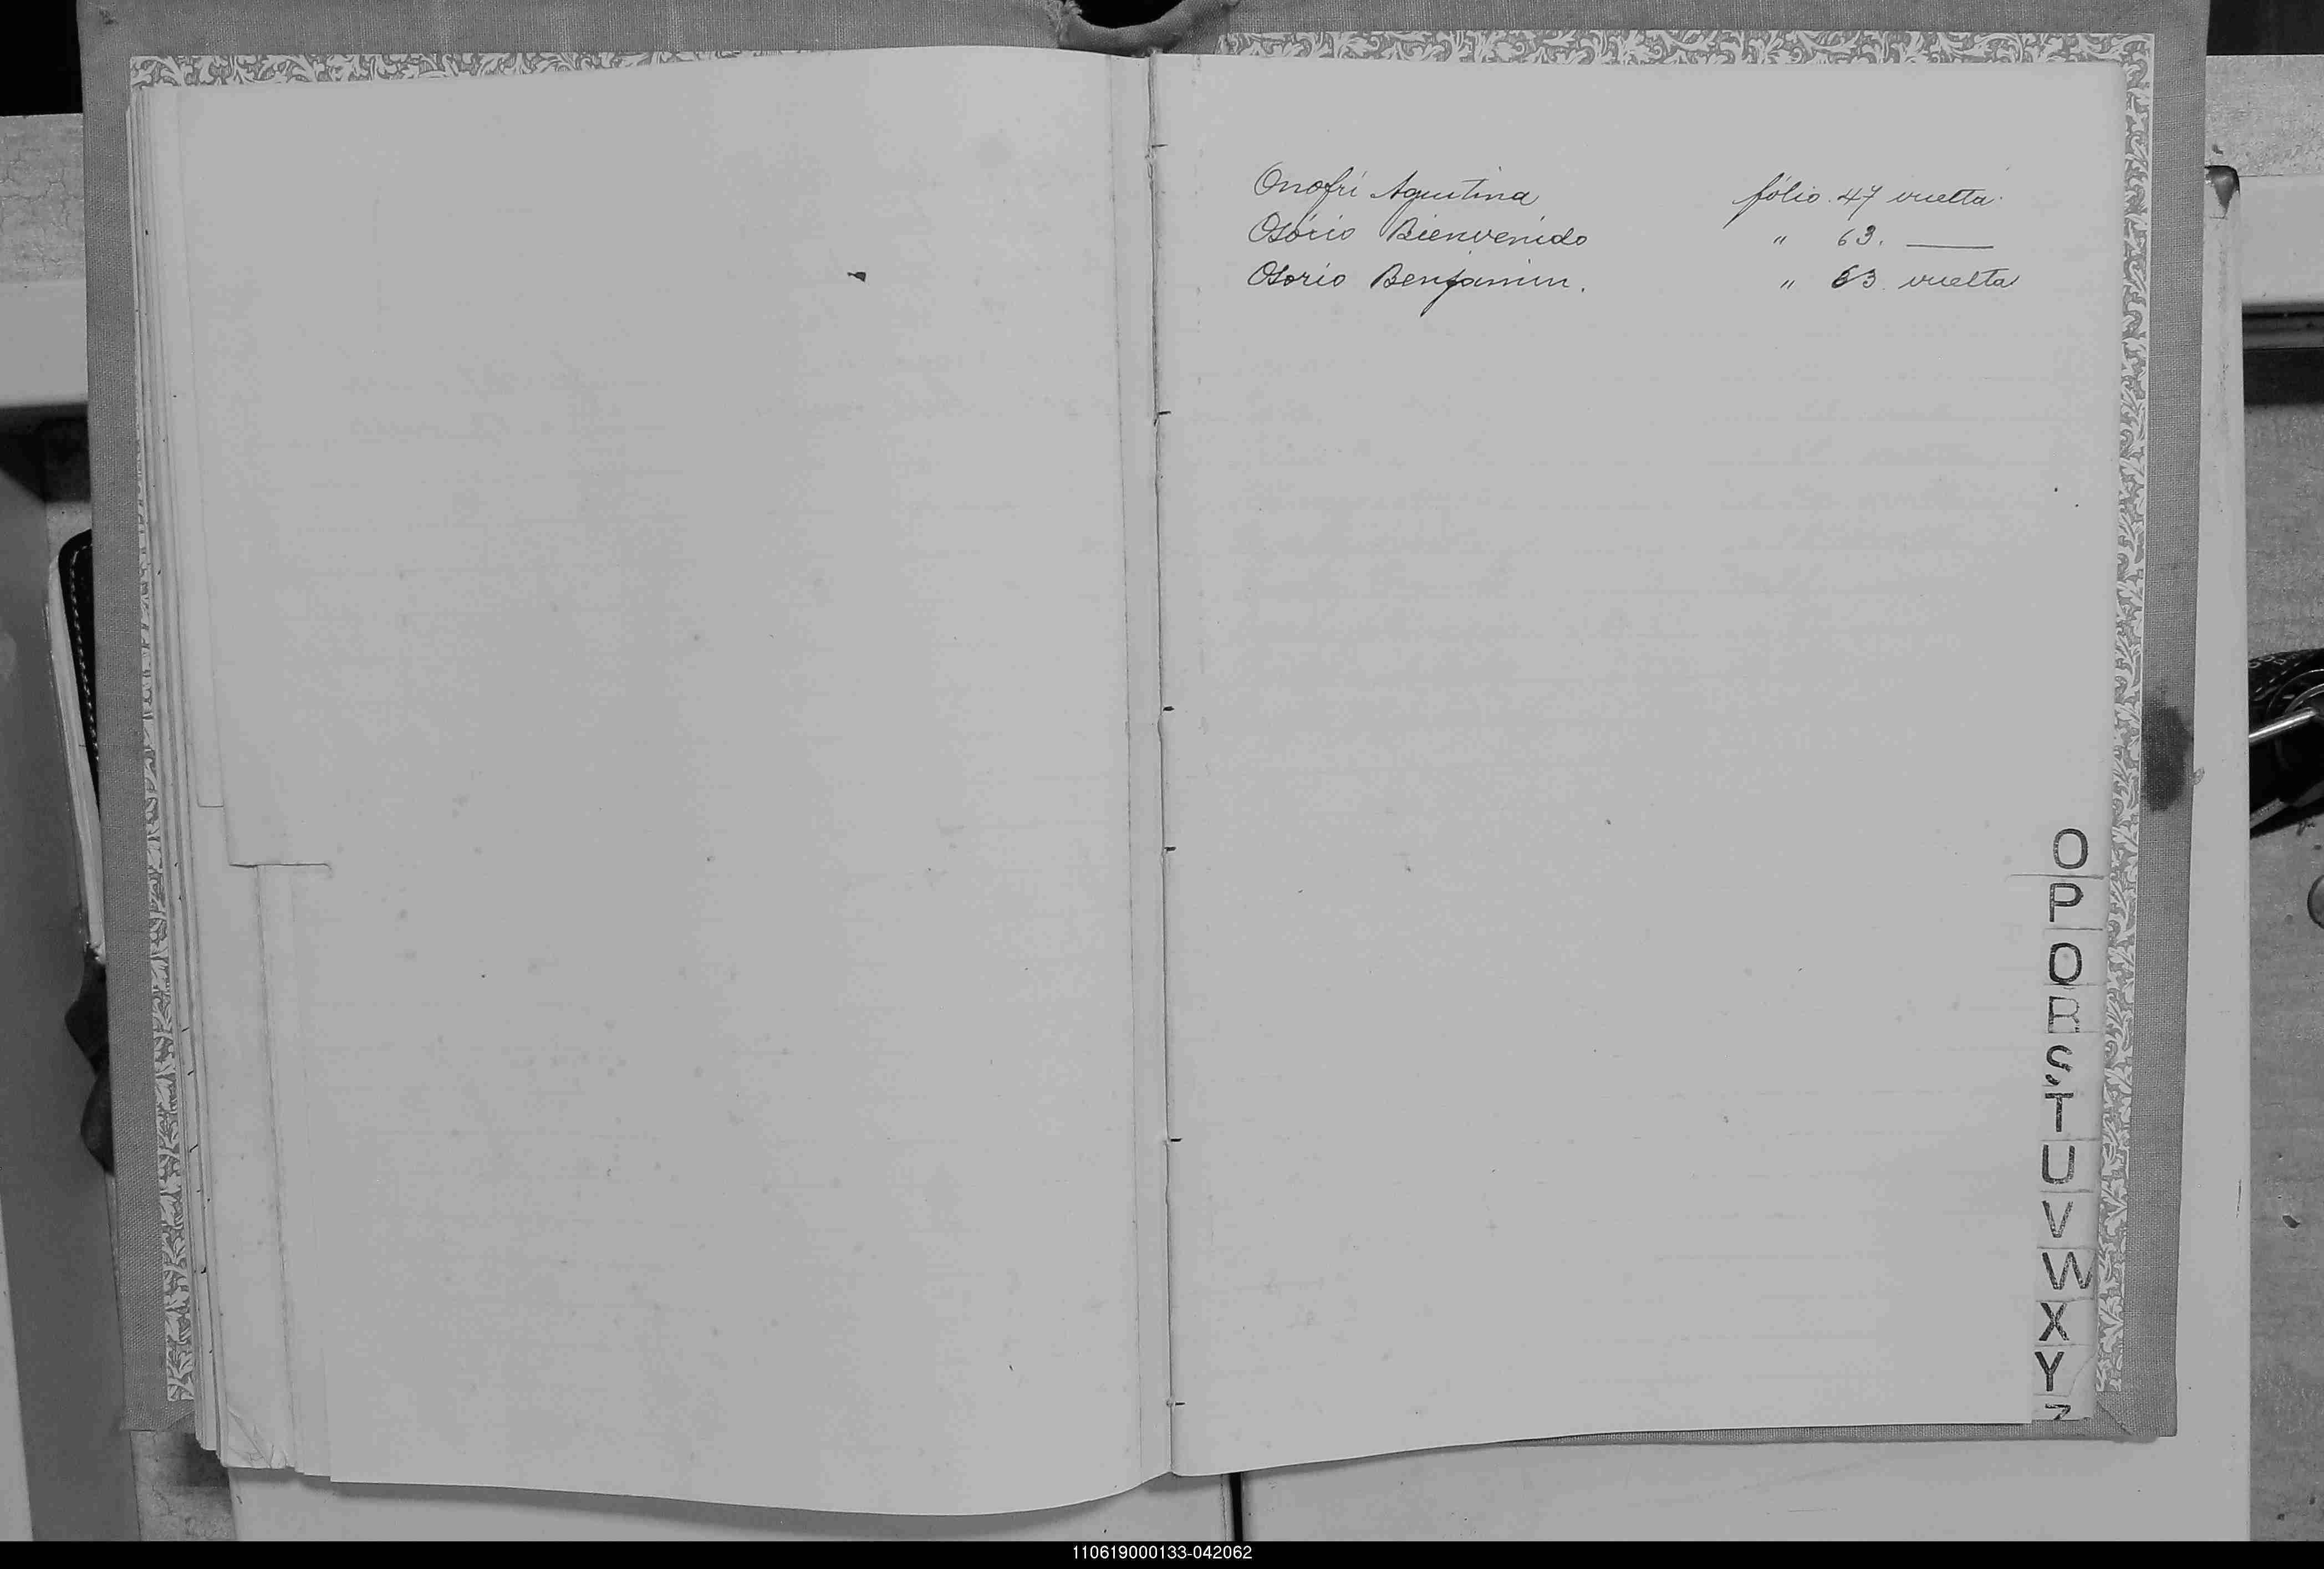 Onofri Agustina fólio. 47 vuelta.
Osório Bienvenido " 63. ——
Osorio Benjamin. " 63. vuelta
O
P
Q
R
S
T
U
V
W
X
Y
Z
110619000133-042062